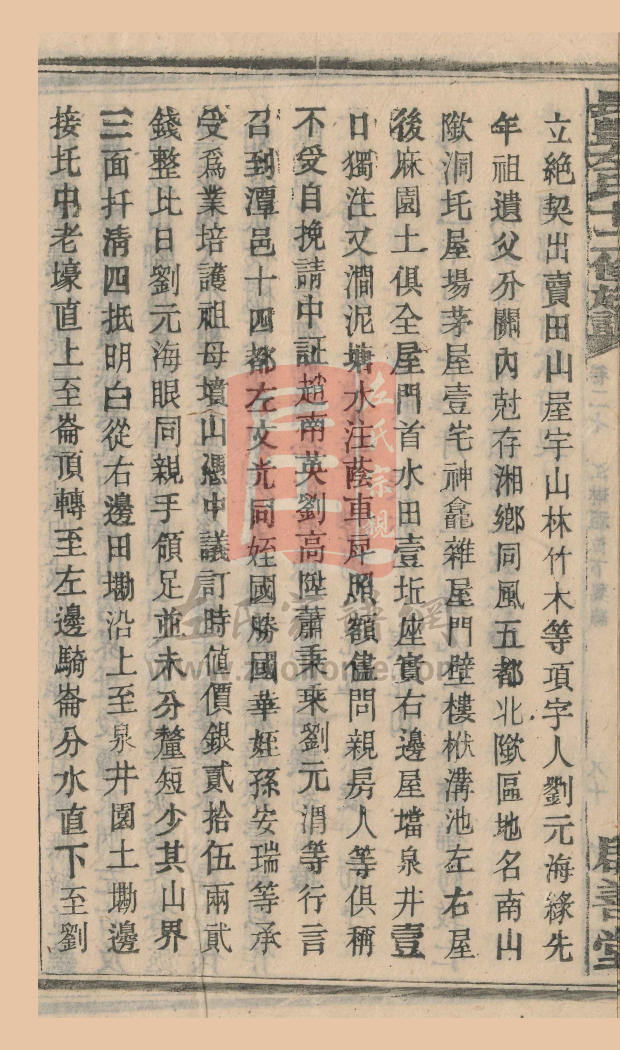 立絶契出賣田山屋宇山林竹木等項字人劉元海緣先
年祖遺父分關內尅存湘鄉同風五都北欿區地名南山
欿洞圫屋場茅屋壹宅神龕雜屋門壁樓栿溝池左右屋
後麻園土俱全屋門首水田壹坵座實右邊屋壋泉井壹
口獨注又澗泥塘水注蔭車戽照額儘問親房人等俱稱
不受自挽請中証趙南英劉高陞蕭秉琹劉元渭等行言
召到潭邑十四都左文光同姪國勝國華姪孫安瑞等承
受爲業培護祖母墳山憑中議訂時値價銀貳拾伍兩貳
錢整比日劉元海眼同親手領足並未分釐短少其山界
三面扦清四抵明白從右邊田墈沿上至泉井園土墈邊
接圫中老壕直上至崙頂轉至左邊騎崙分水直下至劉
左氏宗親
左氏宗譜網